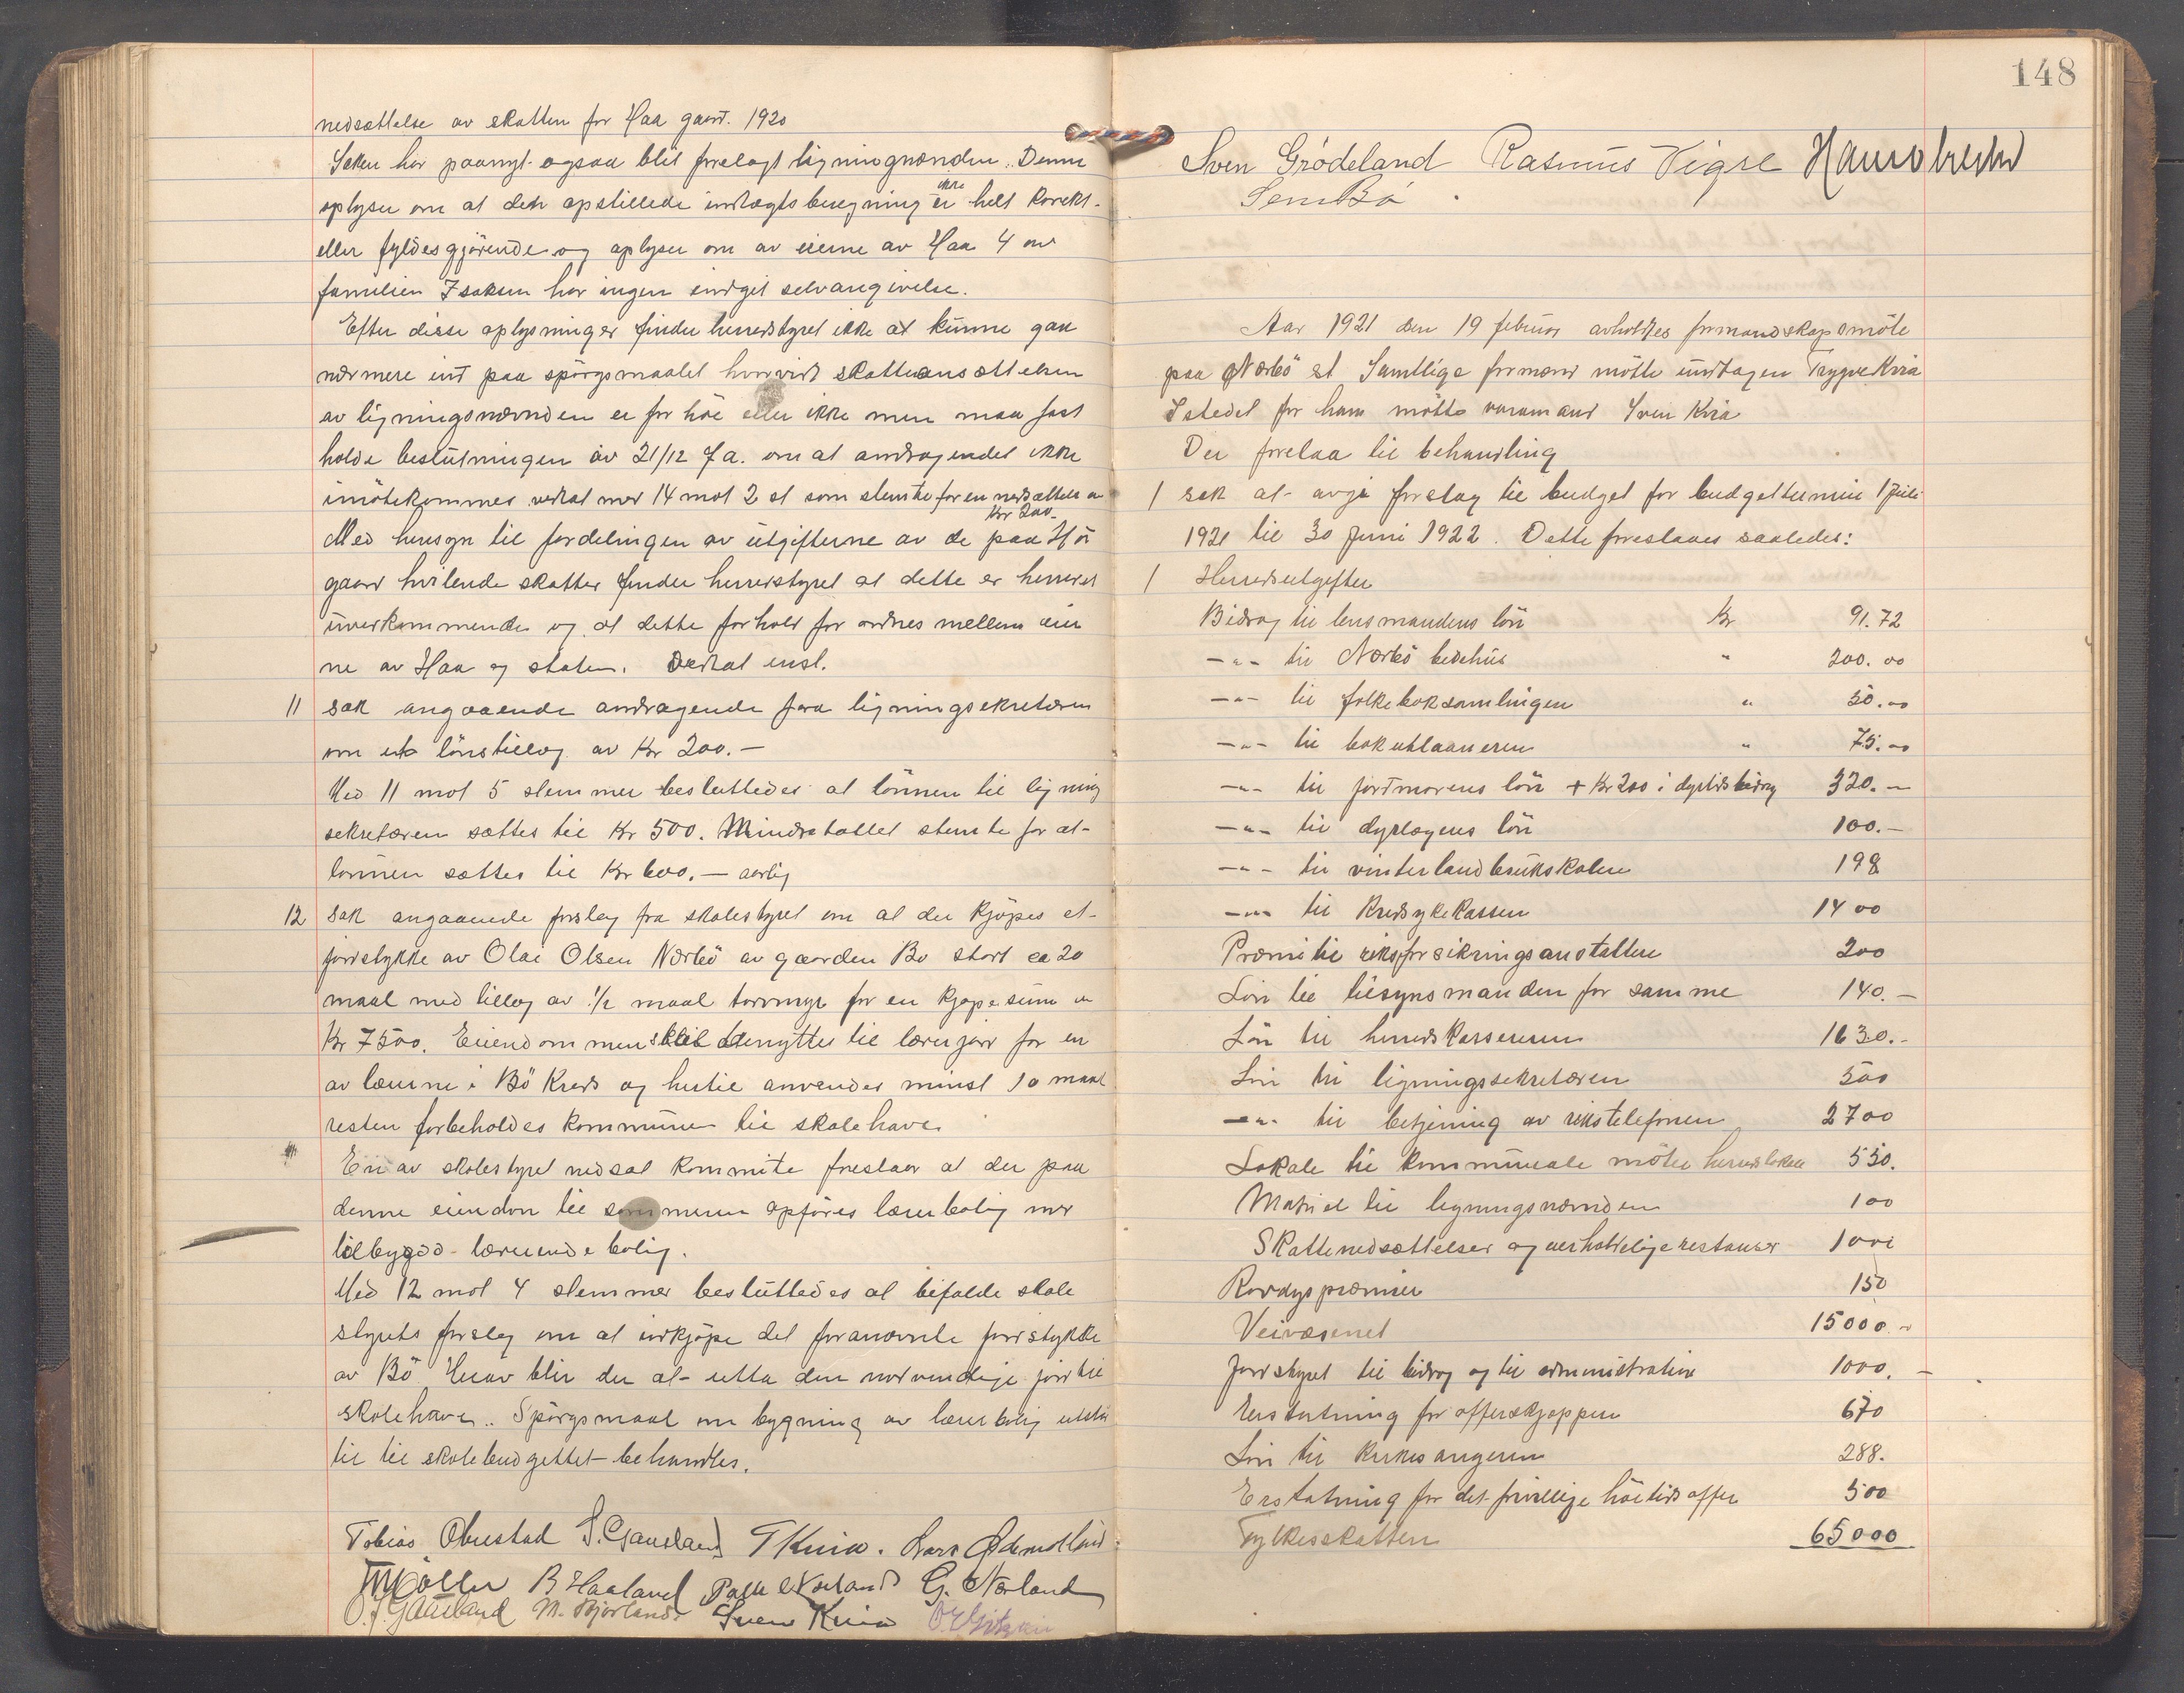 nedsættelse av skatten for Haa gaard. 1920
Saken har paanyt ogsaa blit forelagt ligningnænden. Denne
oplyser om at den opstillede indtægtsberegning ikke er helt korekt
eller fyldesgjørende og oplyser om av eierne av Haa 4 av
familien Isaksen har ingen indgit selvangivelse.
Efter disse oplysninger finder herredstyret ikke at kunne gaa
nærmere ind paa spörgsmaalet hvorvidt skatteansættelsen
av ligningsnævnden er for höi eller ikke men maa fast
holde beslutningen av 21/12 f a. om at andragendet ikke
imötekommes vedtat mot 14 mot 2 st som stemte for en nedsættelse av
Kr 200.-
Med hensyn til fordelingen av utgifterne av de paa Hå
gaard hvilende skatter finder herredstyret at dette er herredet
uvedkommende og at dette forhold for ordnes mellem eier
ne av Haa og staten. Vedtat enst.
11 sak angaaende andragende fra ligningsekretæren
om et lönstillæg av Kr 200.-
Med 11 mot 5 stemmer besluttedes at lönnen til ligning
sekretæren sættes til Kr 500. Mindretallet stemte for at
lönnen sættes til Kr 600.- aarlig
12 Sak angaaende forslag fra skolestyret om at der kjöpes et
jordstykke av Olai Olsen Nærbö av gaarden Bö stort ca 20
maal med tillæg av 1/2 maal torvmyr for en kjöpesum av
Kr 7500. Eiendommen skal benyttes til lærerjord for en
av lærerne i Bö Kreds og hertil anvendes minst 10 maal
resten forbeholdes kommunen til skolehave.
En av skolestyret nedsat kommite foreslaar at der paa
denne eiendom til sommeren opföres lærerbolig med
tilbygd lærerindebolig.
Med 12 mot 4 stemmer besluttedes at bifalde skole
styrets forslag om at indkjöpe det forannævnte jordstykke
av Bö Herav blir der at utta den nødvendige jord til
skolehave. Spörgsmaal om bygning av lærerbolig utstår
til til skolebudgettet behandles.
Tobias Obrestad S. Gausland T Kvia. Lars Ødemotland
Møller B Haaland Palle Nærland G. Nærland
O. J. Gausland M. Bjorland Sven Kvia
148
Sven Grödeland Rasmus Vigre Hans Obrestad
Sem Bö
Aar 1921 den 19 februar avholdtes formandskapsmöte
paa Nærbö st Samtlige formænd mötte undtagen Trygve Kvia
Istedet for ham mötte varamand Sven Kvia
Der forelaa til behandling
1 sak at avgi forslag til budget for budgettermin 1 Juli
1921 til 30 Juni 1922. Dette foreslaaes saaledes:
1 Herredsutgifter
Bidrag til lensmandens lön Kr 91.72
-"- til Nærbö bedehus " 200.00
-"- til folkeboksamlingen " 50.00
-"- til bokutlaaneren " 75.00
-"- til jordmorens lön + Kr 200 i dyrtidsbidrag 320.-
-"- til dyrlægens lön 100.-
-"- til vinterlandbrukskolen 198
-"- til Kredsykekassen 1400
Præmi til riksforsikringsanstalten 200
Lön til tilsynsmanden for samme 140.-
Lön til herredskassereren 1630.-
Lön til ligningssekretæren 500
-"- til betjening av rikstelefonen 2700
Lokale til kommunale möter herredslokale 530.
Matriel til ligningsnævnden 100
Skattenedsættelser og uerholdelige restanser 1000
Rovdyrspræmier 150
Veivæsenet 15000.-
Jordstyret til bidrag og til administration 1000.-
Erstatning for offerskjæppen 670
Lön til kirkesangeren 288.
Erstatning for det frivillige höitidsoffer 500
Fylkesskatten 65000